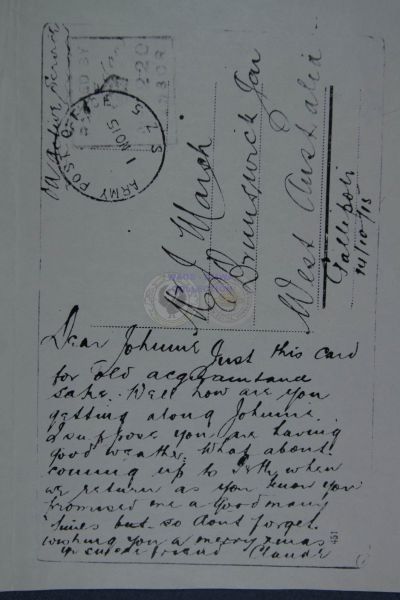 On Active Service
PASSED BY
ARMY POST OFFICE
1 NO 15
Mr J March
Brunswick Jcn
West Australia
Gallipoli
Dear Johnnie Just this card
for old acquaintance
sake. Well how are you
getting along Johnnie.
I suppose you are having
good weather. What about
coming up to Perth when
we return as you know you
promised me a good many
times but so dont forget.
wishing you a merry Xmas
yr sincere friend Claude
451